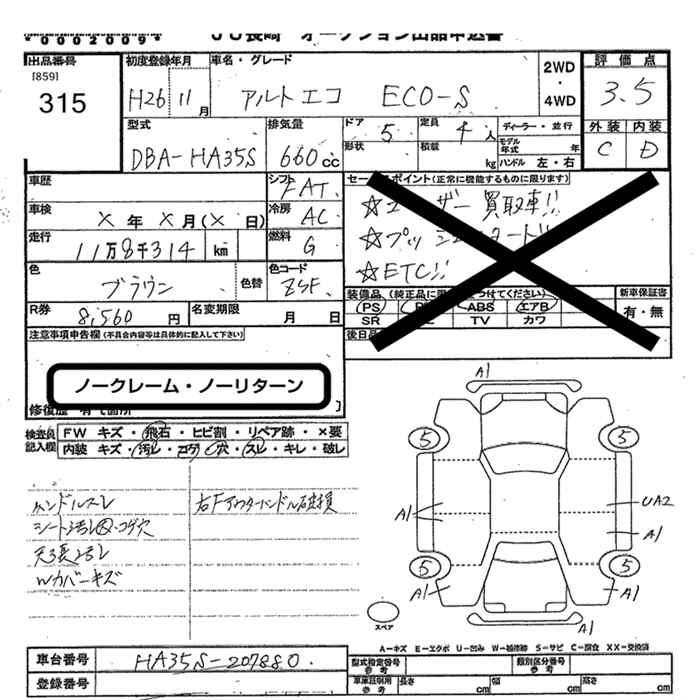 *0002009*
JU長崎 オークション出品申込書
出品番号
[859]
315
初度登録年月
H26 11月
車名・グレード
アルトエコ ECO-S
2WD
・
4WD
評価点
3.5
外装 内装
C D
型式
DBA-HA35S
排気量
660cc
ドア 5
形状
定員 4人
積載 kg
ディーラー・並行
モデル年式 年
ハンドル 左・右
車歴
シフト FAT
車検
× 年 × 月(× 日)
冷房 AC
走行
11万8千314 km
燃料 G
色
ブラウン
色替
色コード
ZSF
R券
8,560円
名変期限 月 日
セールスポイント(正常に機能するものに限ります)
☆ユーザー買取車!!
☆プッシュスタート!!
☆ETC!!
装備品(純正品に限り○をつけてください)
PS ABS エアB
SR TV カワ
新車保証書
有・無
後日品
注意事項申告欄(不具合内容等は具体的に記入して下さい)
ノークレーム・ノーリターン
修復歴 有 箇所
検査員記入欄
FW キズ・飛石・ヒビ割・リペア跡・×要
内装 キズ・汚レ・コゲ・穴・スレ・キレ・破レ
ハンドルスレ
シート汚レ・コゲ穴
天張汚レ
Wカバーキズ
右Fアウターハンドル破損
A1
5 5
A1 UA2
A1
5 5
A1 A1
A1
スペア
A-キズ E-エクボ U-凹み W-補修跡 S-サビ C-腐食 XX-交換済
車台番号
HA35S-207880
登録番号
型式指定番号 参考
類別区分番号 参考
車庫証明用 参考 長さ cm 幅 cm 高さ cm